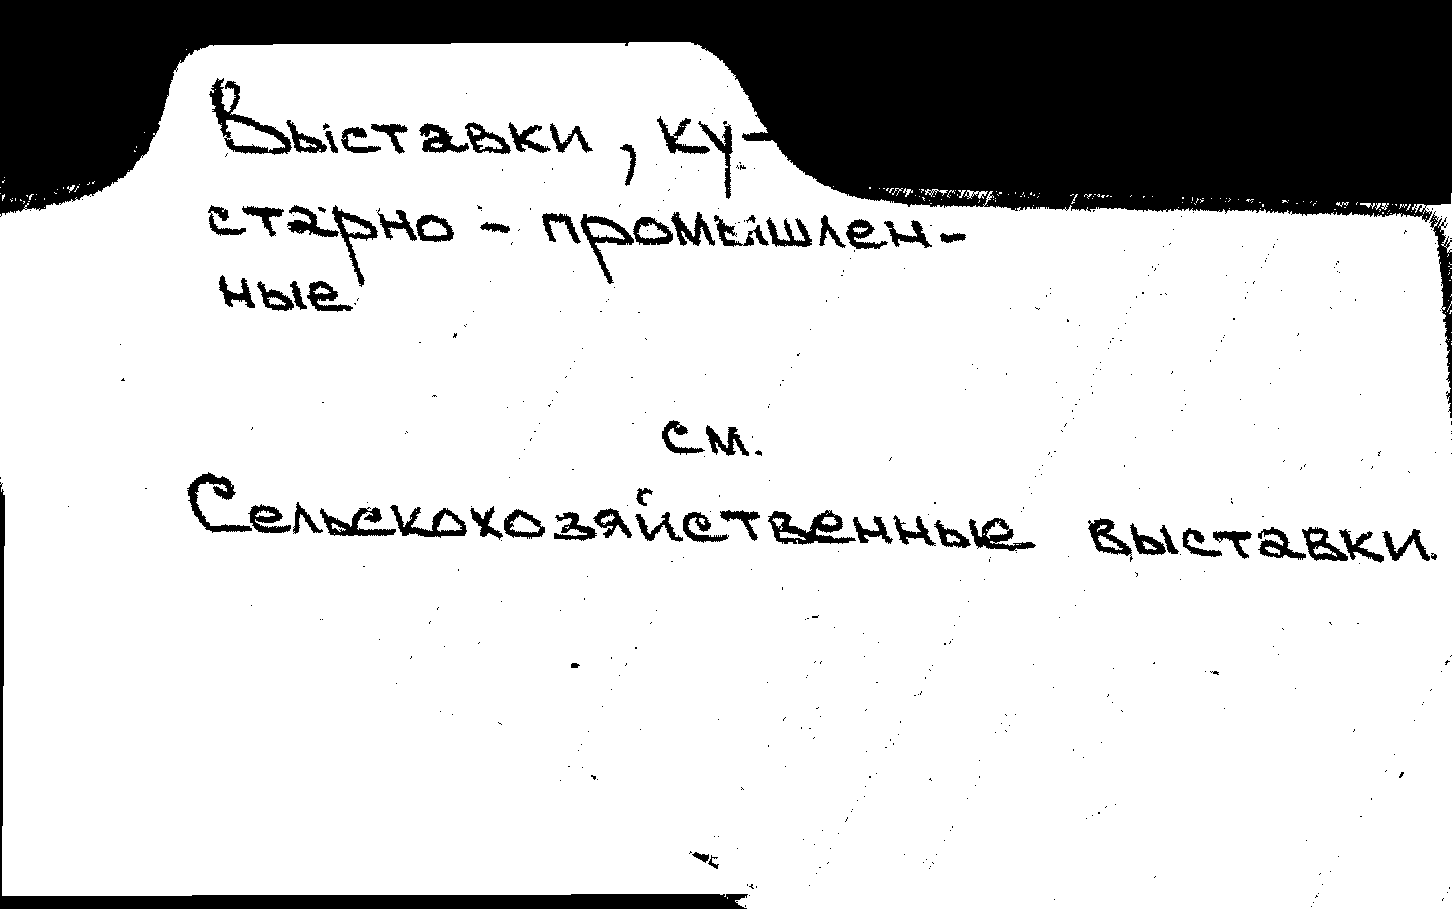 Выставки, ку-
старно-промышлен-
ные
см.
Сельскохозяйственные выставки.